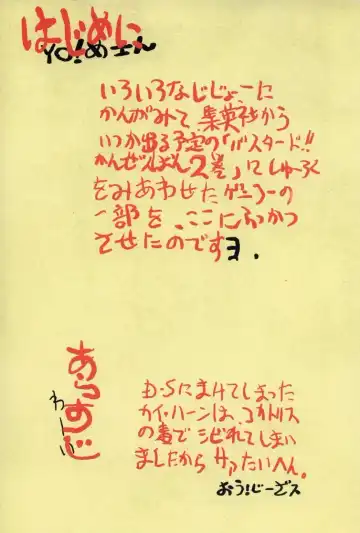 はじめに
YO!めーん
いろいろなじじょーに
かんがみて 集英社から
いつか出る予定の「バスタード!!
かんぜんばん2巻」にしゅーろく
をみあわせたゲンコーの
一部を、ここにふっかつ
させたのですヨ.
あらすじ
わーい
D・Sにまけてしまった
カイ・ハーンは、コカトリス
の毒でシビれてしまい
ましたから サアたいへん。
おう!じーざス